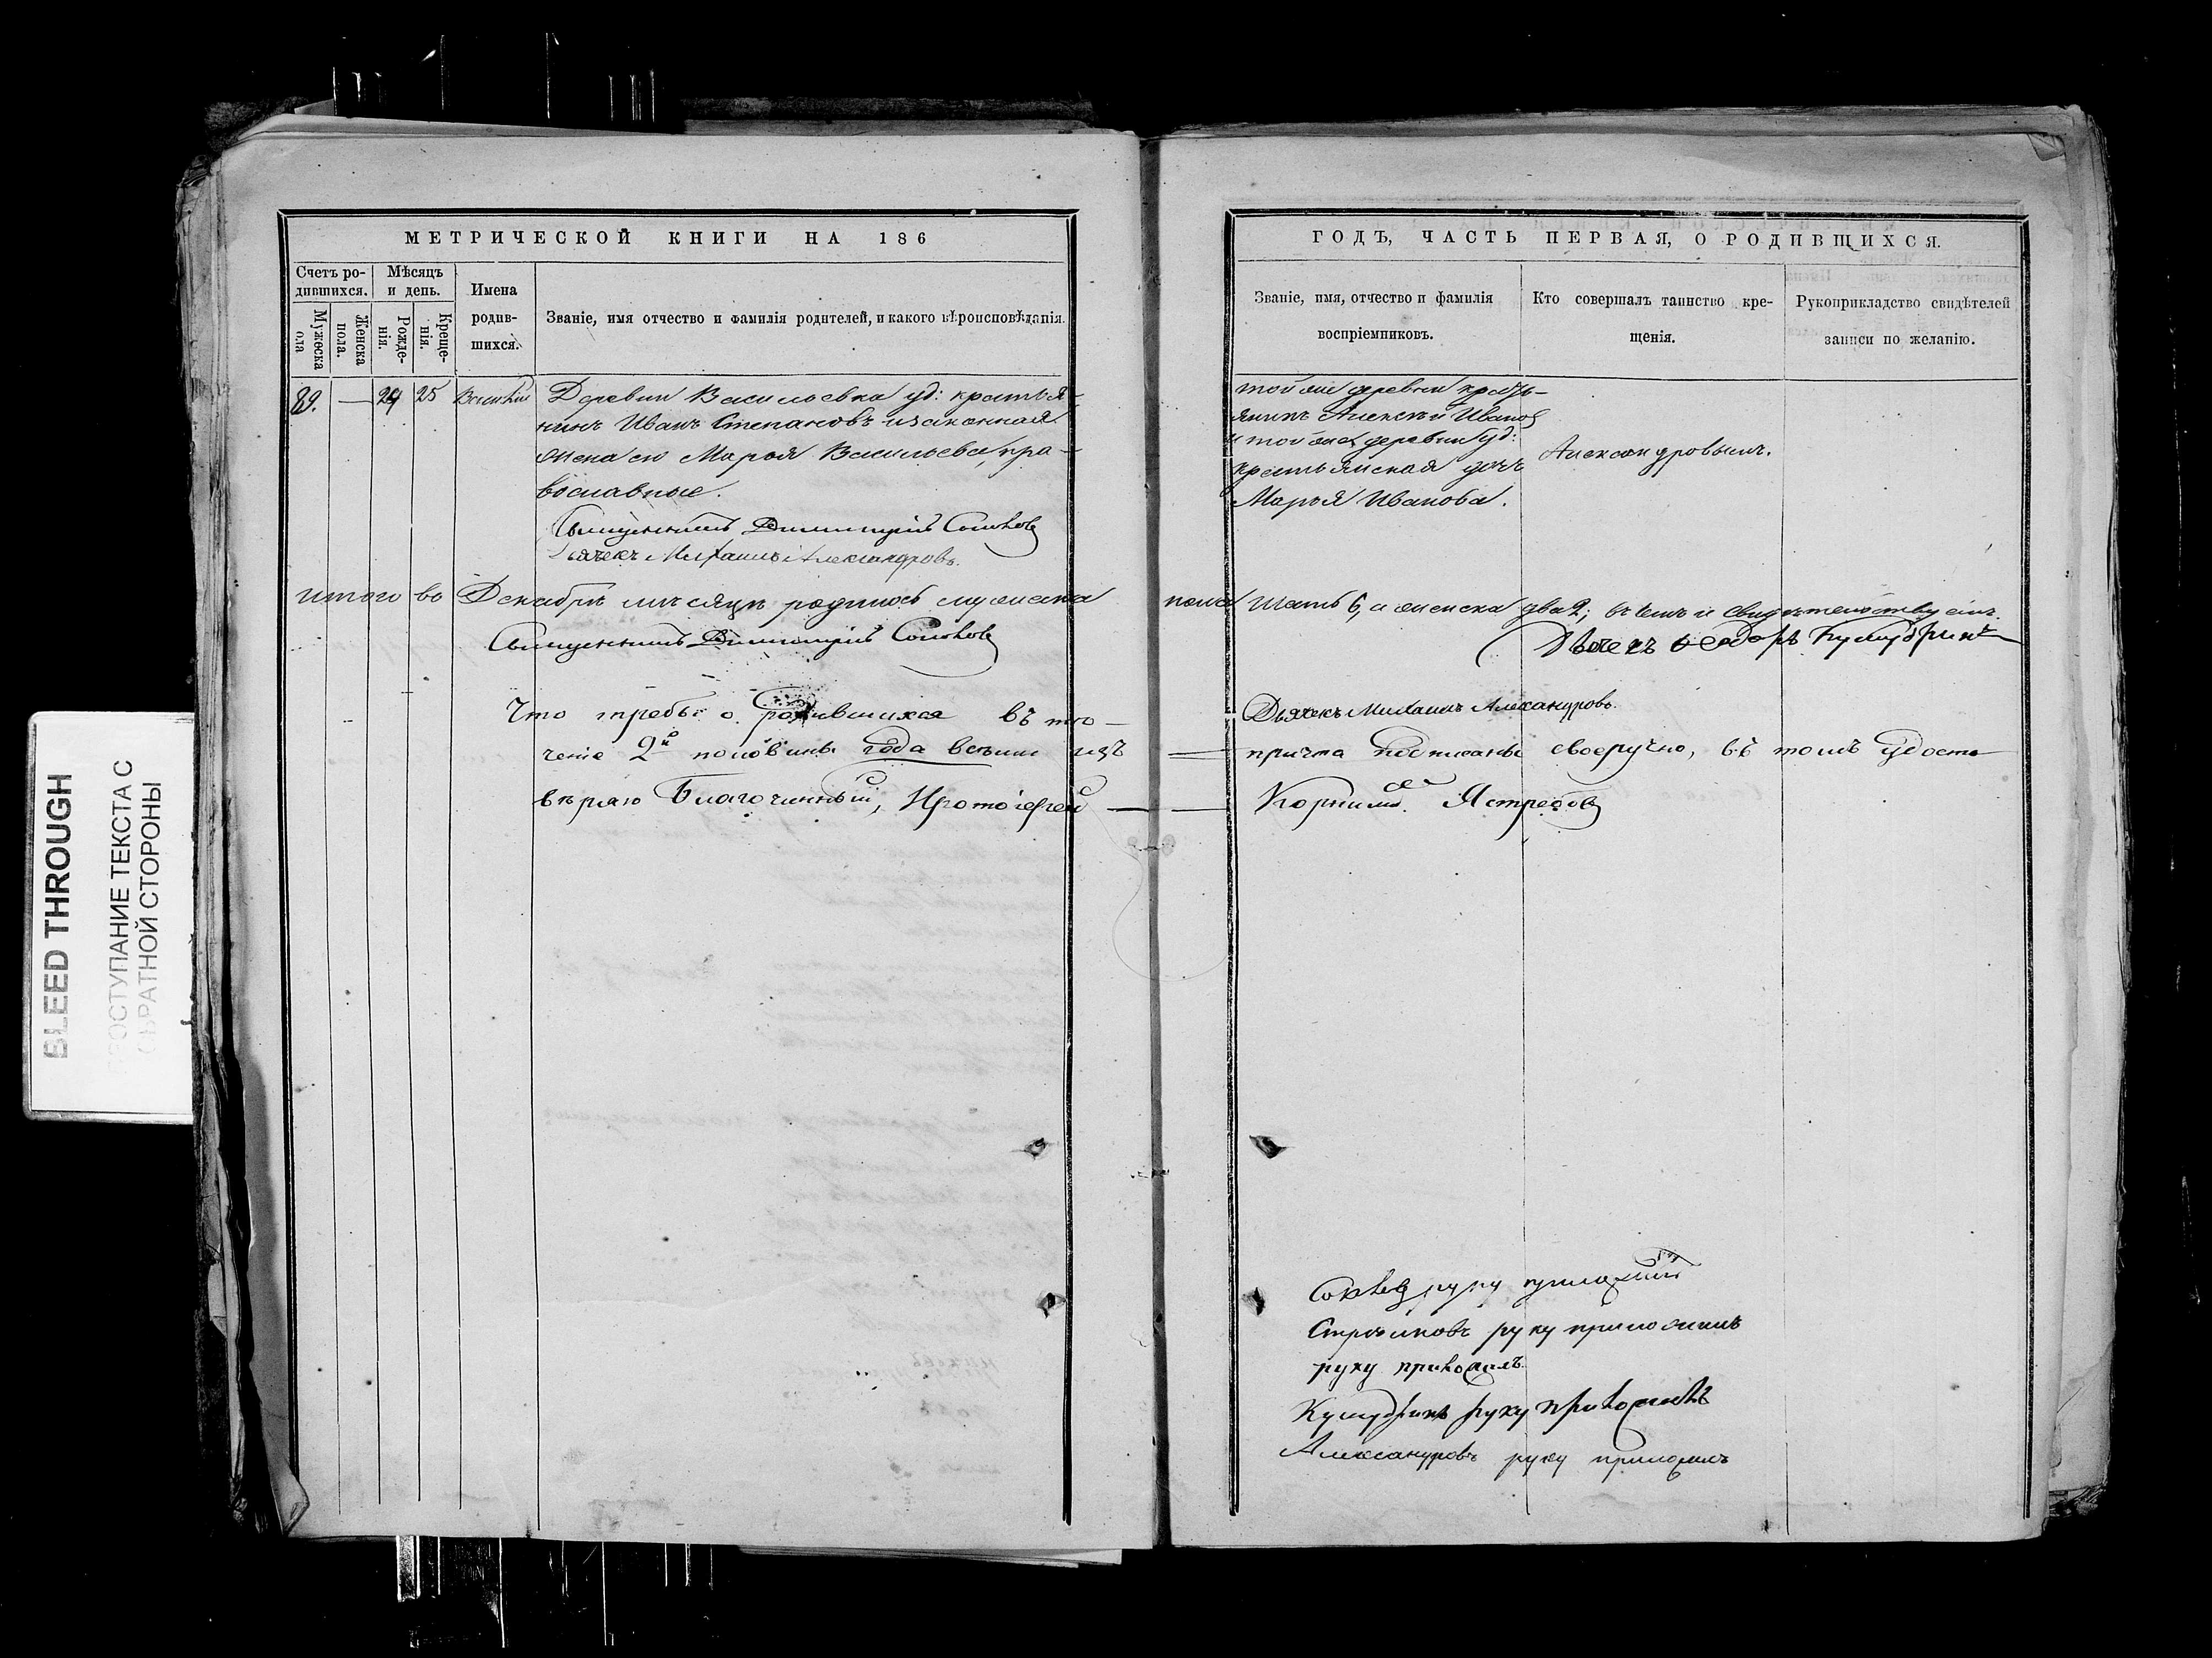 МЕТРИЧЕСКОЙ КНИГИ НА 186
Счетъ ро-
дившихся.
Мѣсяцъ
и день.
Имена
родив-
шихся.
Званіе, имя отчество и фамилія родителей, и какого вѣроисповѣданія.
Мужеска
ола
Женска
пола.
Рожде-
нія.
Креще-
нія.
89. — 24 25 Василій
Деревни Васильевка уд: крестья-
нинъ Иванъ Степановъ и законная
жена его Марья Васильева, пра-
вославные.
Священникъ Димитрій Соколовъ
Дьячекъ Михаилъ Александровъ.
Итого во Декабрѣ мѣсяцѣ родилось мужеска
Священникъ Димитрій Соколовъ
Что требы о родившихся въ те-
ченіе 2й половины года всѣми изъ
вѣряю Благочинный, Протоіерей —
ГОДЪ, ЧАСТЬ ПЕРВАЯ, О РОДИВШИХСЯ.
Званіе, имя, отчество и фамилія
воспріемниковъ.
Кто совершалъ таинство кре-
щенія.
Рукоприкладство свидѣтелей
записи по желанію.
той же деревни кресть-
янинъ Алексѣй Ивановъ
и той же деревни уд:
крестьянская дочь
Марья Иванова.
Александровымъ.
пола шесть 6, а женска два 2; въ чемъ и свидѣтельствуемъ.
Дьячекъ Ѳедоръ
Дьячекъ Михаилъ Александровъ.
причта подписаны своеручно, въ томъ удосто-
— Корнилій Ястребовъ
Соколовъ руку приложилъ
руку приложилъ
руку приложилъ
руку приложилъ
Александровъ руку приложилъ
BLEED THROUGH
ПРОСТУПАНИЕ ТЕКСТА С
ОБРАТНОЙ СТОРОНЫ